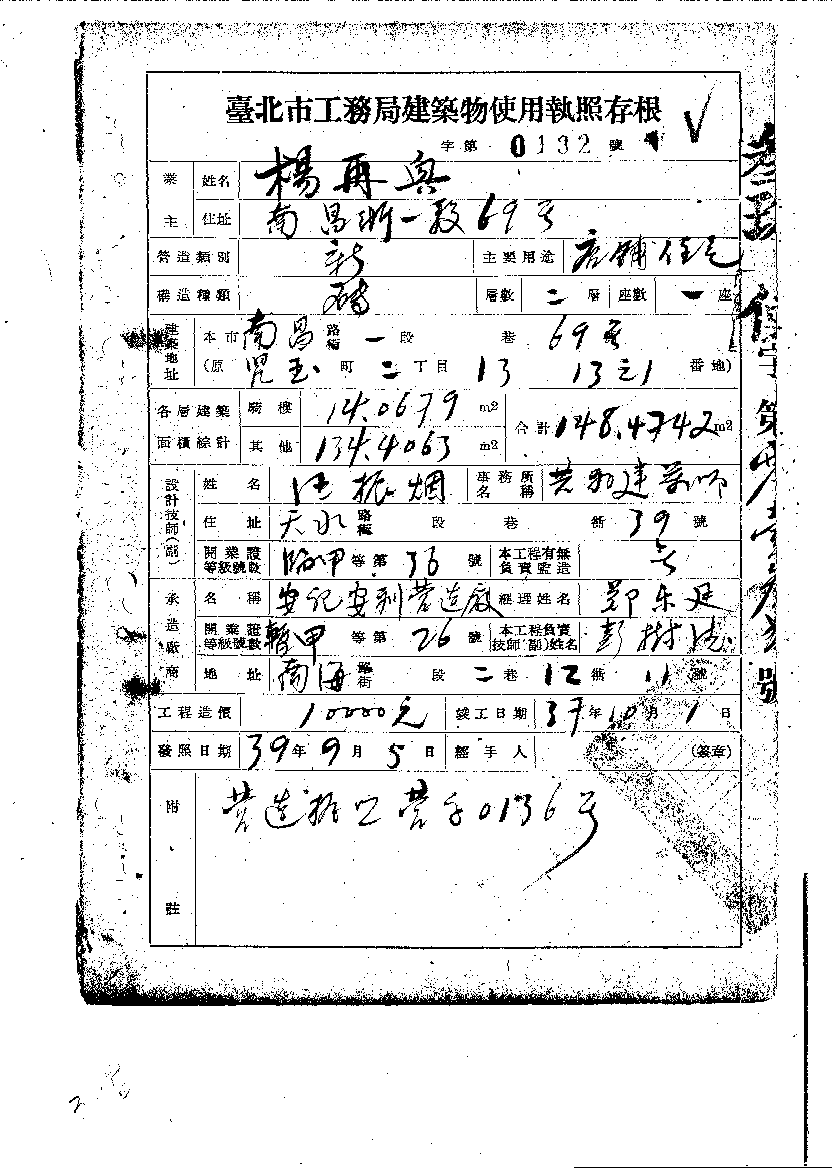 臺北市工務局建築物使用執照存根
字第 0132 號
業主 姓名 楊再興
住址 南昌街一段69号
營造類別 新 主要用途 店鋪住宅
構造種類 磚 層數 二 層 座數 一 座
建築地址 本市 南昌 路街 一 段 巷 69号
(原 児玉 町 二 丁目 13 13之1 番地)
各層建築面積綜計 騎樓 14.0679 m2 合計 148.4742 m2
其他 134.4063 m2
設計技師(副) 姓名 汪振烟 事務所名稱 共和建築師
住址 天水 路街 段 巷 衖 39 號
開業證等級號數 臨甲 等第 36 號 本工程有無負責監造
承造廠商 名稱 安記安利營造廠 經理姓名 鄞樂廷
開業證等級號數 暫甲 等第 26 號 本工程負責技師(副)姓名 彭樹
地址 南海 路街 段 二 巷 12 衖 11 號
工程造價 10000元 竣工日期 39年10月1日
發照日期 39年9月5日 經手人 (簽章)
附註 营造执照营字0136号